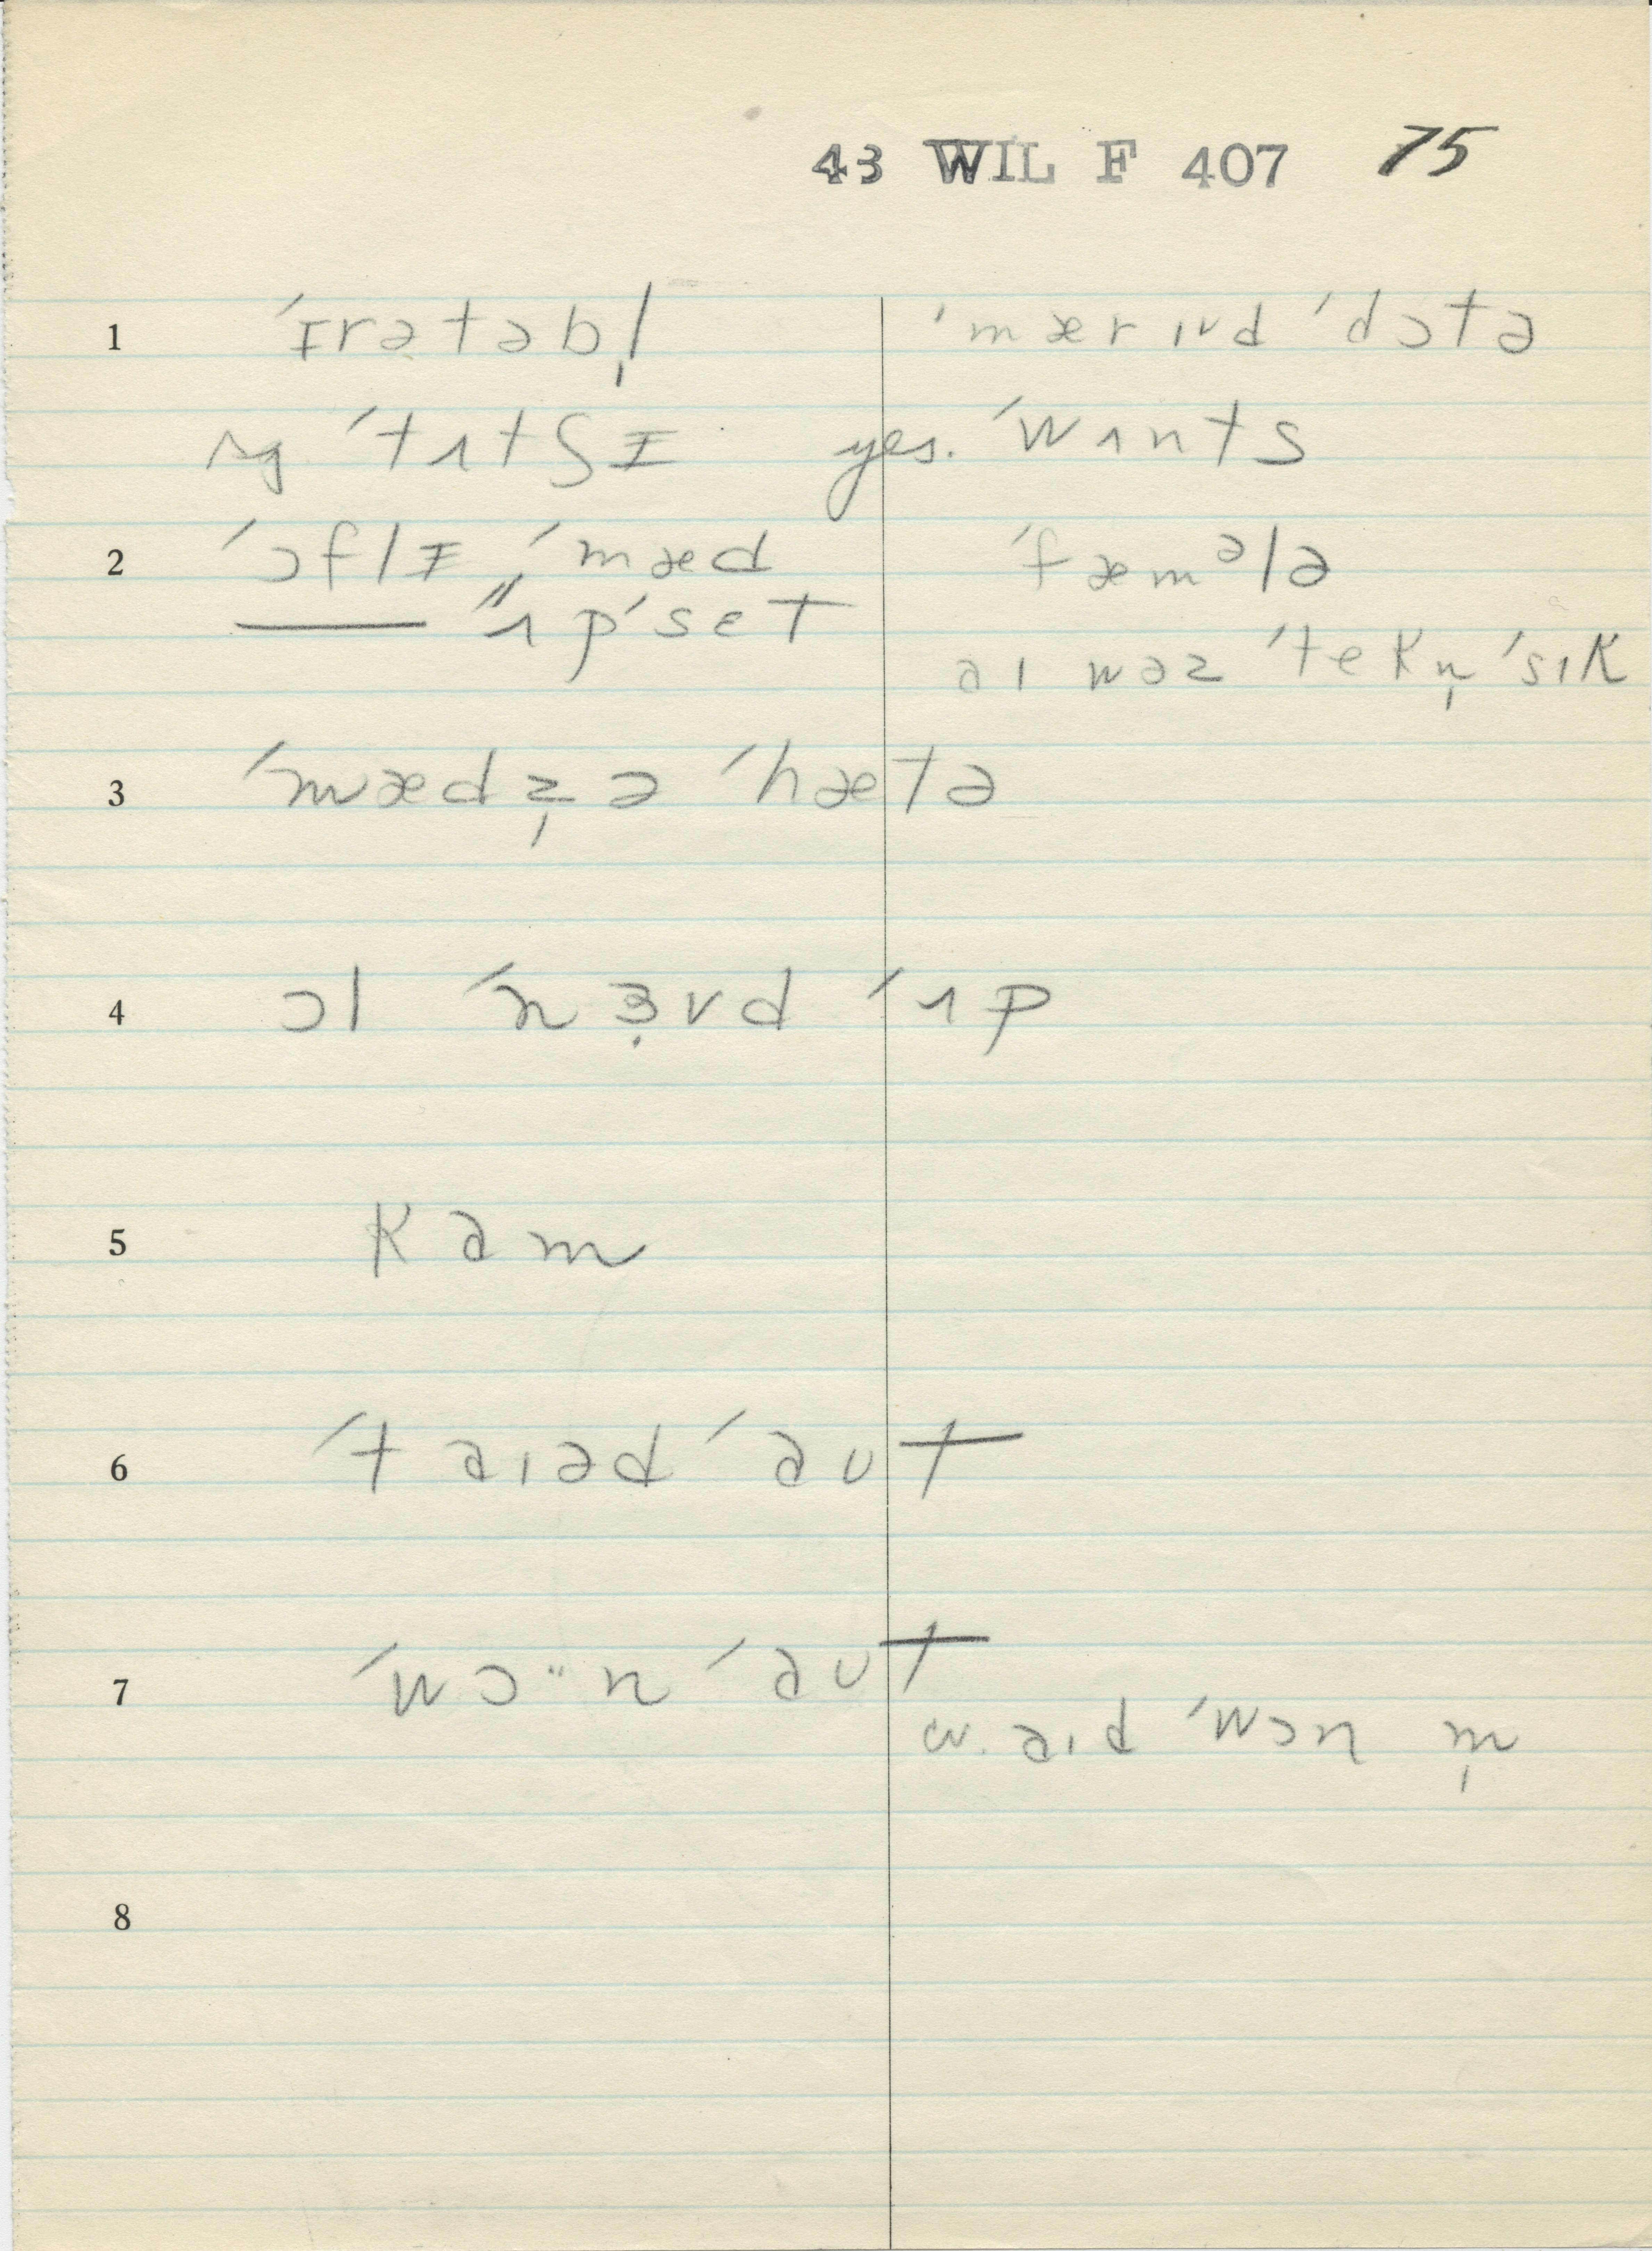 43 WIL F 407 75
1 ˈɪrətəbl̩ ˈmærɪᵿd ˈdɔtə
sg. ˈtʌtʃɪ yes. ˈwʌnts
2 ˈɔflɪ, ˈmæd ˈfæmᵊlə
"ʌpˈset
aɪ wəz ˈtekn̩ ˈsɪk
3 ˈmædz̩ ə ˈhætə
4 ɔl ˈnɜ̣vd ˈʌp
5 kam
6 ˈtaɪəd ˈaʊt
7 ˈwɔ··n ˈaʊt
w. aɪd ˈwɔn m̩
8